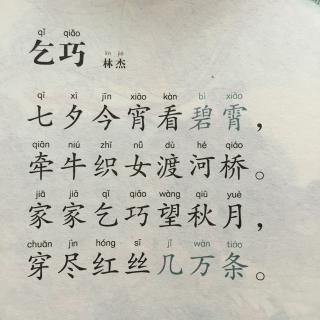 qǐ qiǎo
乞巧
lín jié
林杰
qī xī jīn xiāo kàn bì xiāo
七夕今宵看碧霄，
qiān niú zhī nǚ dù hé qiáo
牵牛织女渡河桥。
jiā jiā qǐ qiǎo wàng qiū yuè
家家乞巧望秋月，
chuān jìn hóng sī jǐ wàn tiáo
穿尽红丝几万条。